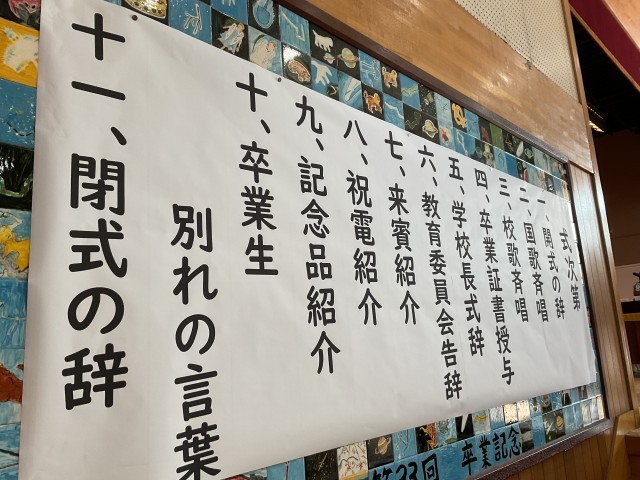 式次第
一、開式の辞
二、国歌斉唱
三、校歌斉唱
四、卒業証書授与
五、学校長式辞
六、教育委員会告辞
七、来賓紹介
八、祝電紹介
九、記念品紹介
十、卒業生
別れの言葉
十一、閉式の辞
第33回
卒業記念